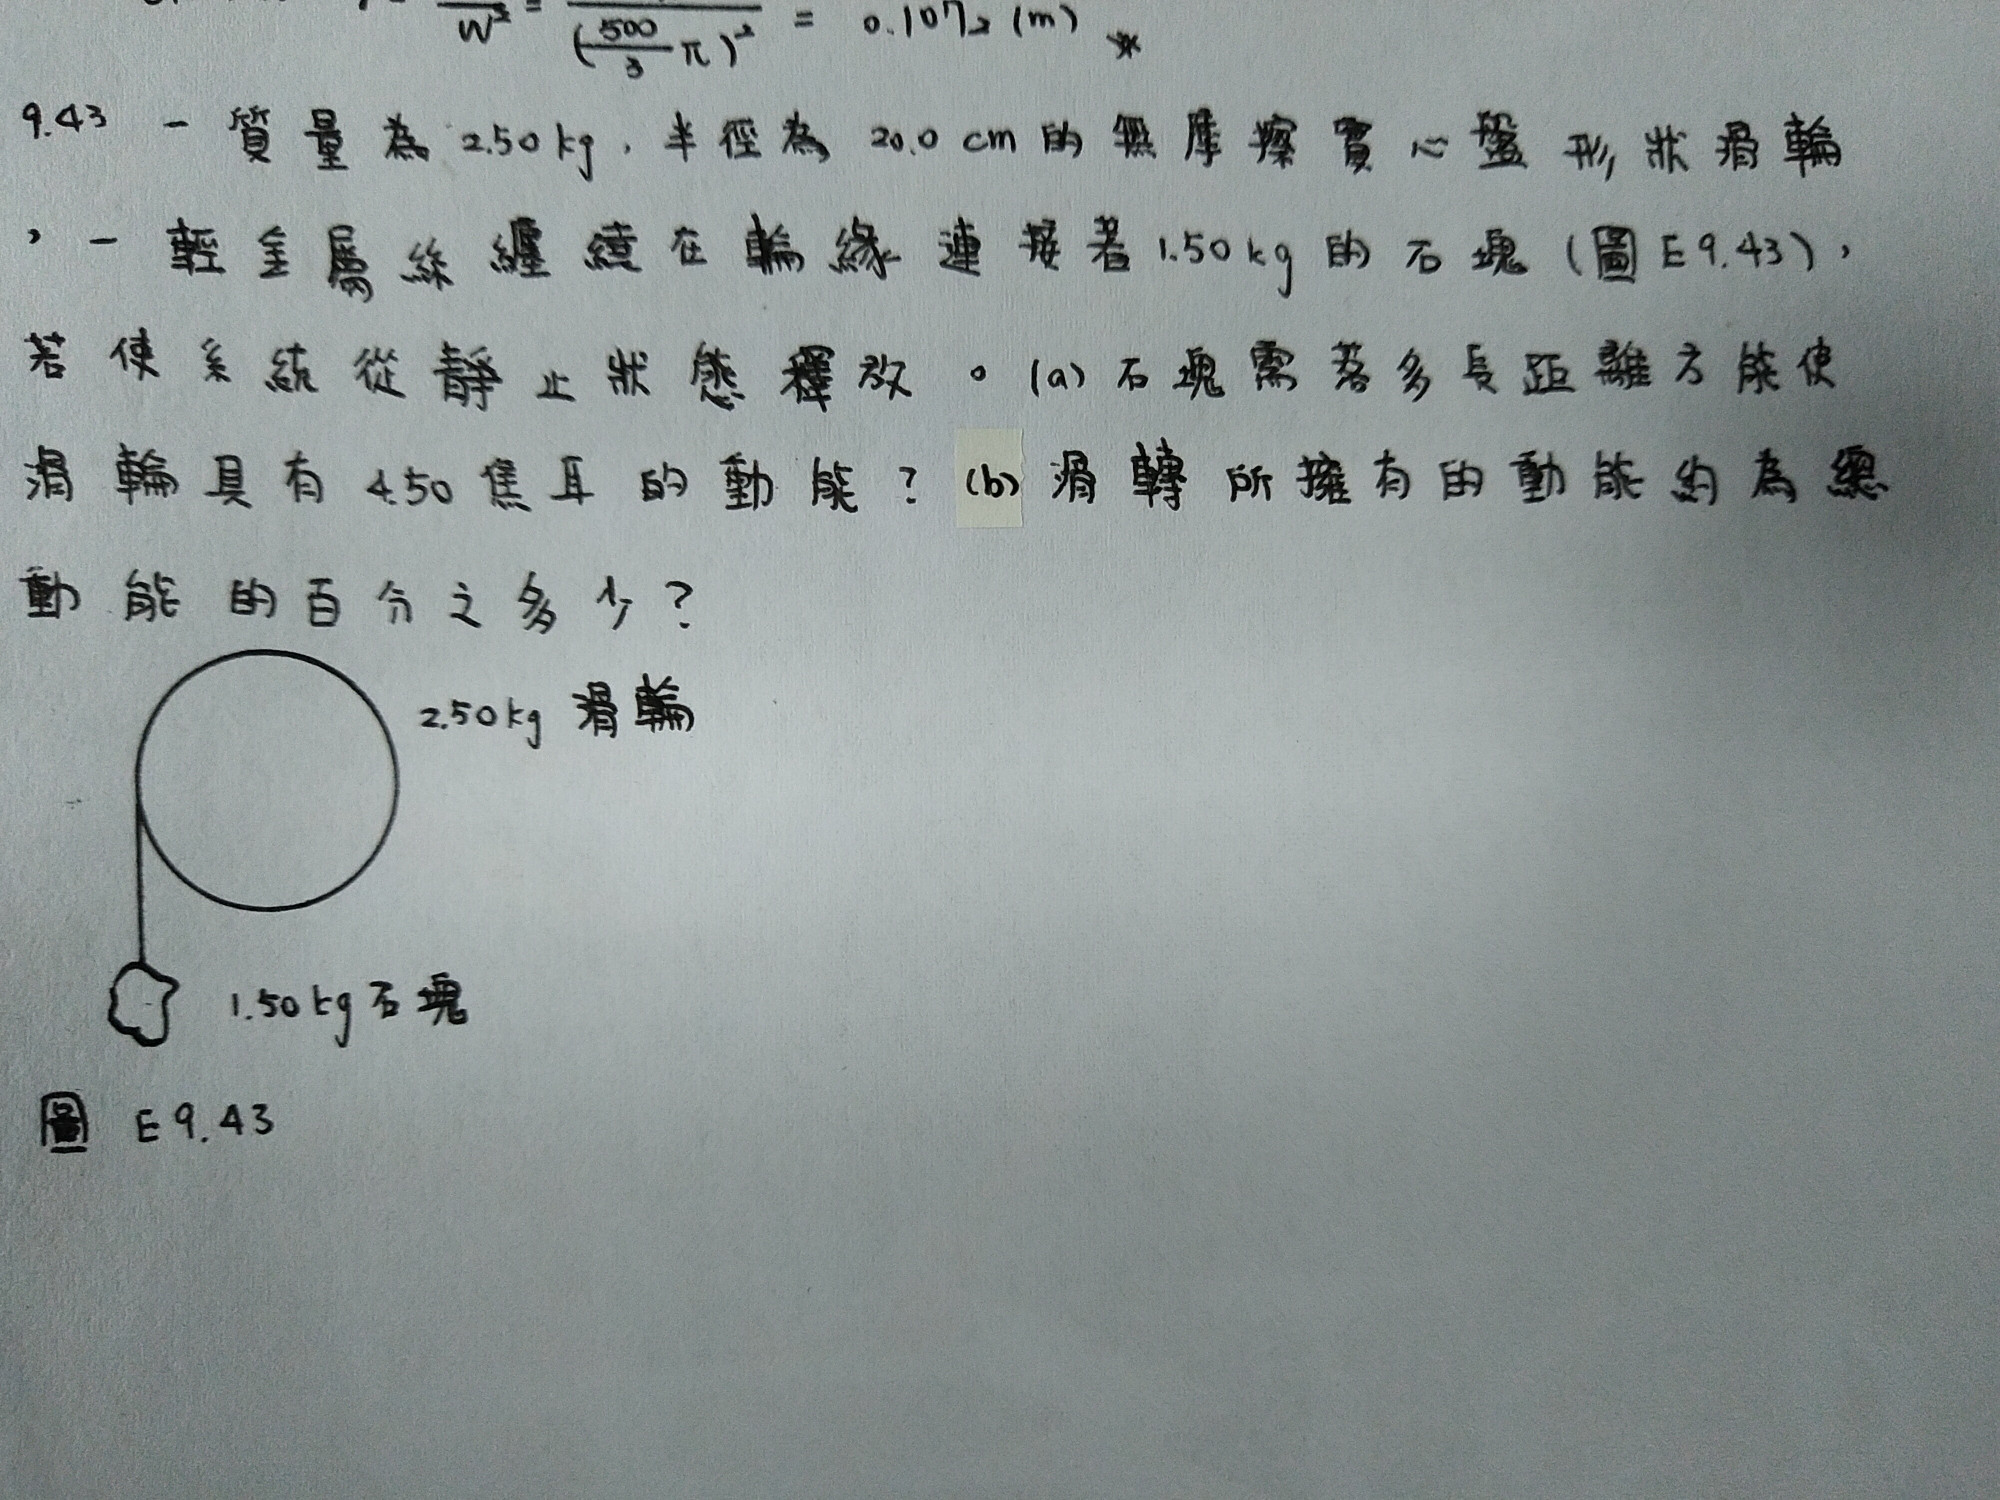 W² = (500/3 π)² = 0.1072 (m) *
9.43 一質量為 2.50 kg, 半徑為 20.0 cm 的無摩擦實心盤形狀滑輪
，一輕金屬絲纏繞在輪緣連接著 1.50 kg 的石塊 (圖 E 9.43)，
若使系統從靜止狀態釋放。(a) 石塊需落多長距離方能使
滑輪具有 4.50 焦耳的動能？(b) 滑轉所擁有的動能約為總
動能的百分之多少？
2.50 kg 滑輪
1.50 kg 石塊
圖 E 9.43